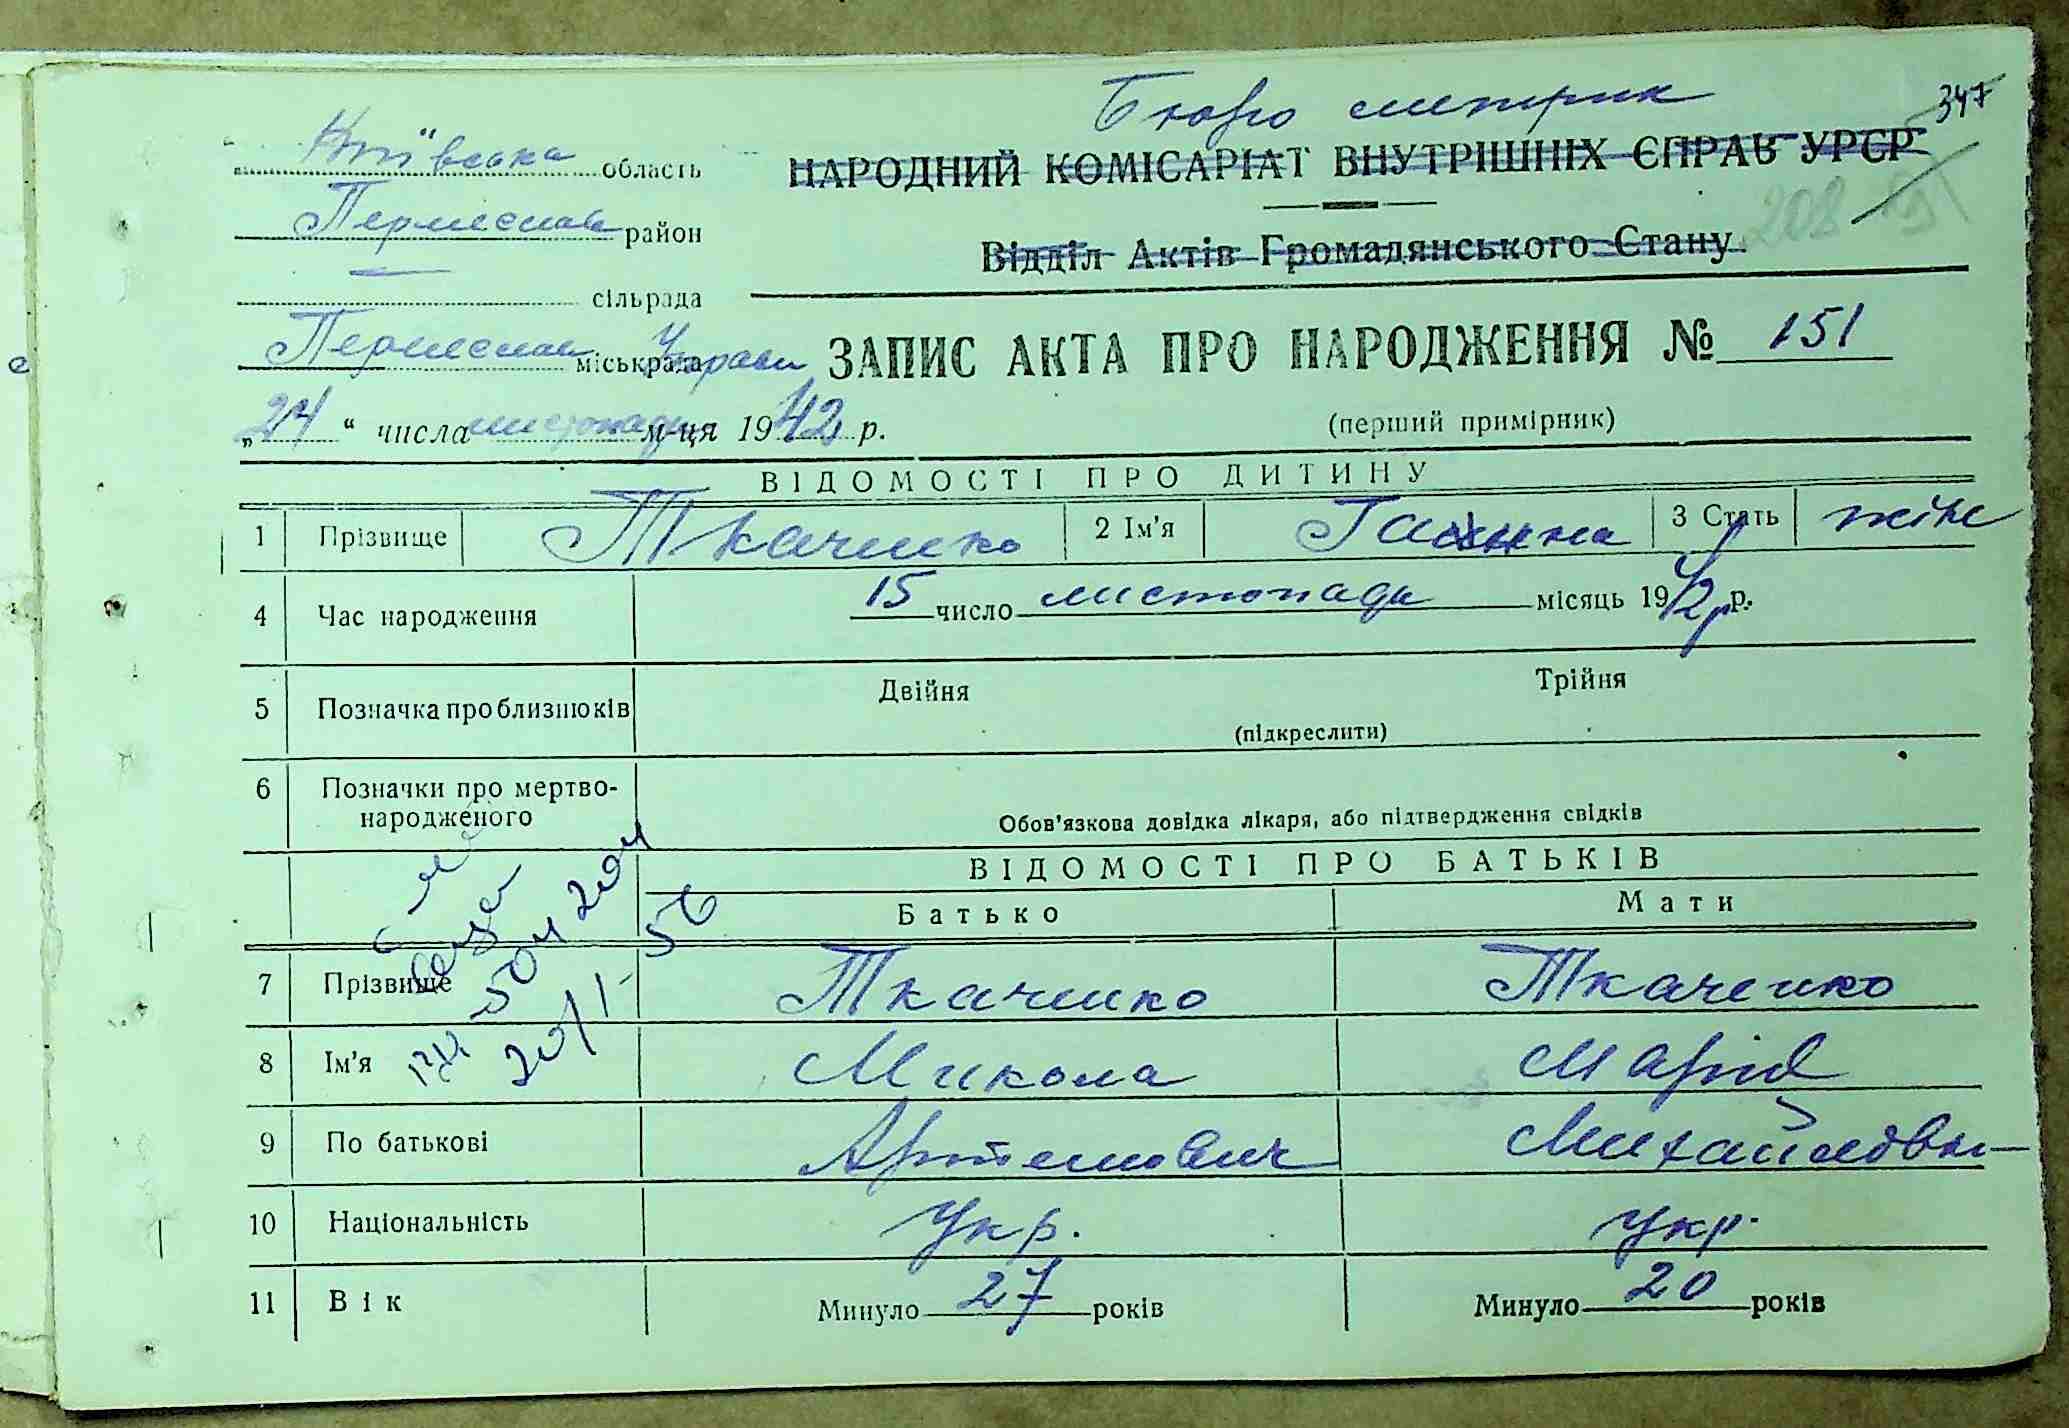 Бюро метрик
347
Київська область
НАРОДНИЙ КОМІСАРІАТ ВНУТРІШНІХ СПРАВ УРСР
208
район
Відділ Актів Громадянського Стану
сільрада
міськрада Управи
ЗАПИС АКТА ПРО НАРОДЖЕННЯ № 151
„24“ числа листопада м-ця 1942 р.
(перший примірник)
ВІДОМОСТІ ПРО ДИТИНУ
1 Прізвище Ткаченко 2 Ім'я Галина 3 Стать жін
4 Час народження 15 число листопада місяць 1942 р.
5 Позначка про близнюків Двійня Трійня
(підкреслити)
6 Позначки про мертво-
народженого
Обов'язкова довідка лікаря, або підтвердження свідків
ВІДОМОСТІ ПРО БАТЬКІВ
Батько Мати
7 Прізвище Ткаченко Ткаченко
8 Ім'я Микола Марія
9 По батькові Артемович Михайловн
10 Національність Укр. Укр.
11 Вік Минуло 27 років Минуло 20 років